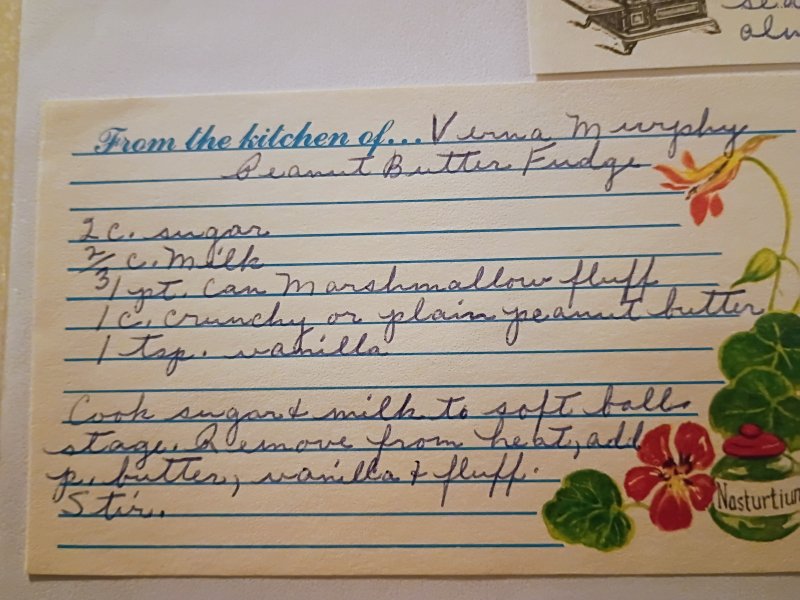 From the kitchen of... Verna Murphy
Peanut Butter Fudge
2 c. sugar
2/3 c. Milk
1 pt. can Marshmallow fluff
1 c. crunchy or plain peanut butter
1 tsp. vanilla
Cook sugar & milk to soft ball
stage. Remove from heat, add
p. butter, vanilla & fluff.
Stir.
Nasturtium